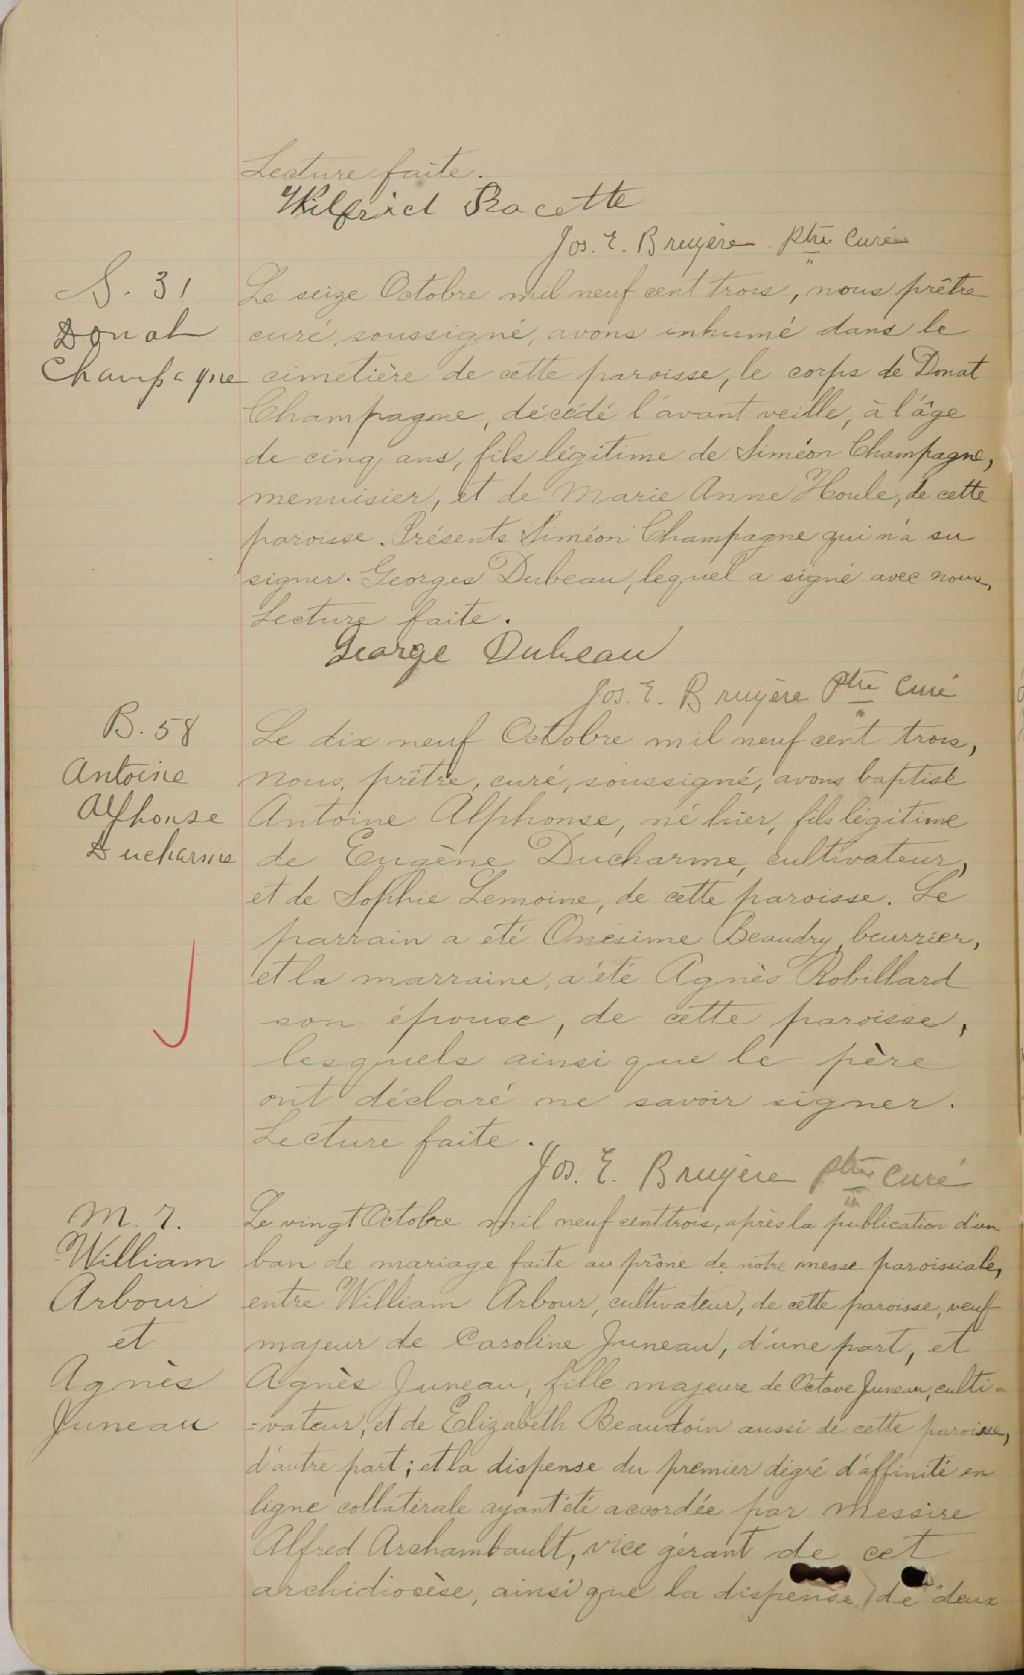 Lecture faite.
Wilfrid Racette
Jos. E. Bruyère ptre curé
S. 31
Donat
Champagne
Le seize Octobre mil neuf cent trois, nous prêtre
curé, soussigné, avons inhumé dans le
cimetière de cette paroisse, le corps de Donat
Champagne, décédé l'avant veille, à l'âge
de cinq ans, fils légitime de Siméon Champagne,
menuisier, et de Marie Anne Houle, de cette
paroisse. Présents Siméon Champagne qui n'a su
signer. Georges Dubeau, lequel a signé avec nous.
Lecture faite.
George Dubeau
Jos. E. Bruyère Ptre Curé
B. 58
Antoine
Alphonse
Ducharme
Le dix neuf Octobre mil neuf cent trois,
nous, prêtre, curé, soussigné, avons baptisé
Antoine Alphonse, né hier, fils légitime
de Eugène Ducharme, cultivateur,
et de Sophie Lemoine, de cette paroisse. Le
parrain a été Onésime Beaudry, beurrier,
et la marraine, a été Agnès Robillard
son épouse, de cette paroisse,
lesquels ainsi que le père
ont déclaré ne savoir signer.
Lecture faite.
Jos. E. Bruyère ptre curé
M. 7.
William
Arbour
et
Agnès
Juneau
Le vingt Octobre mil neuf cent trois, après la publication d'un
ban de mariage faite au prône de notre messe paroissiale,
entre William Arbour, cultivateur, de cette paroisse, veuf
majeur de Caroline Juneau, d'une part, et
Agnès Juneau, fille majeure de Octave Juneau, culti=
=vateur, et de Elizabeth Beaudoin aussi de cette paroisse,
d'autre part; et la dispense du premier dégré d'affinité en
ligne collatérale ayant été accordée par Messire
Alfred Archambault, vice gérant de cet
archidiocèse, ainsi que la dispense de deux